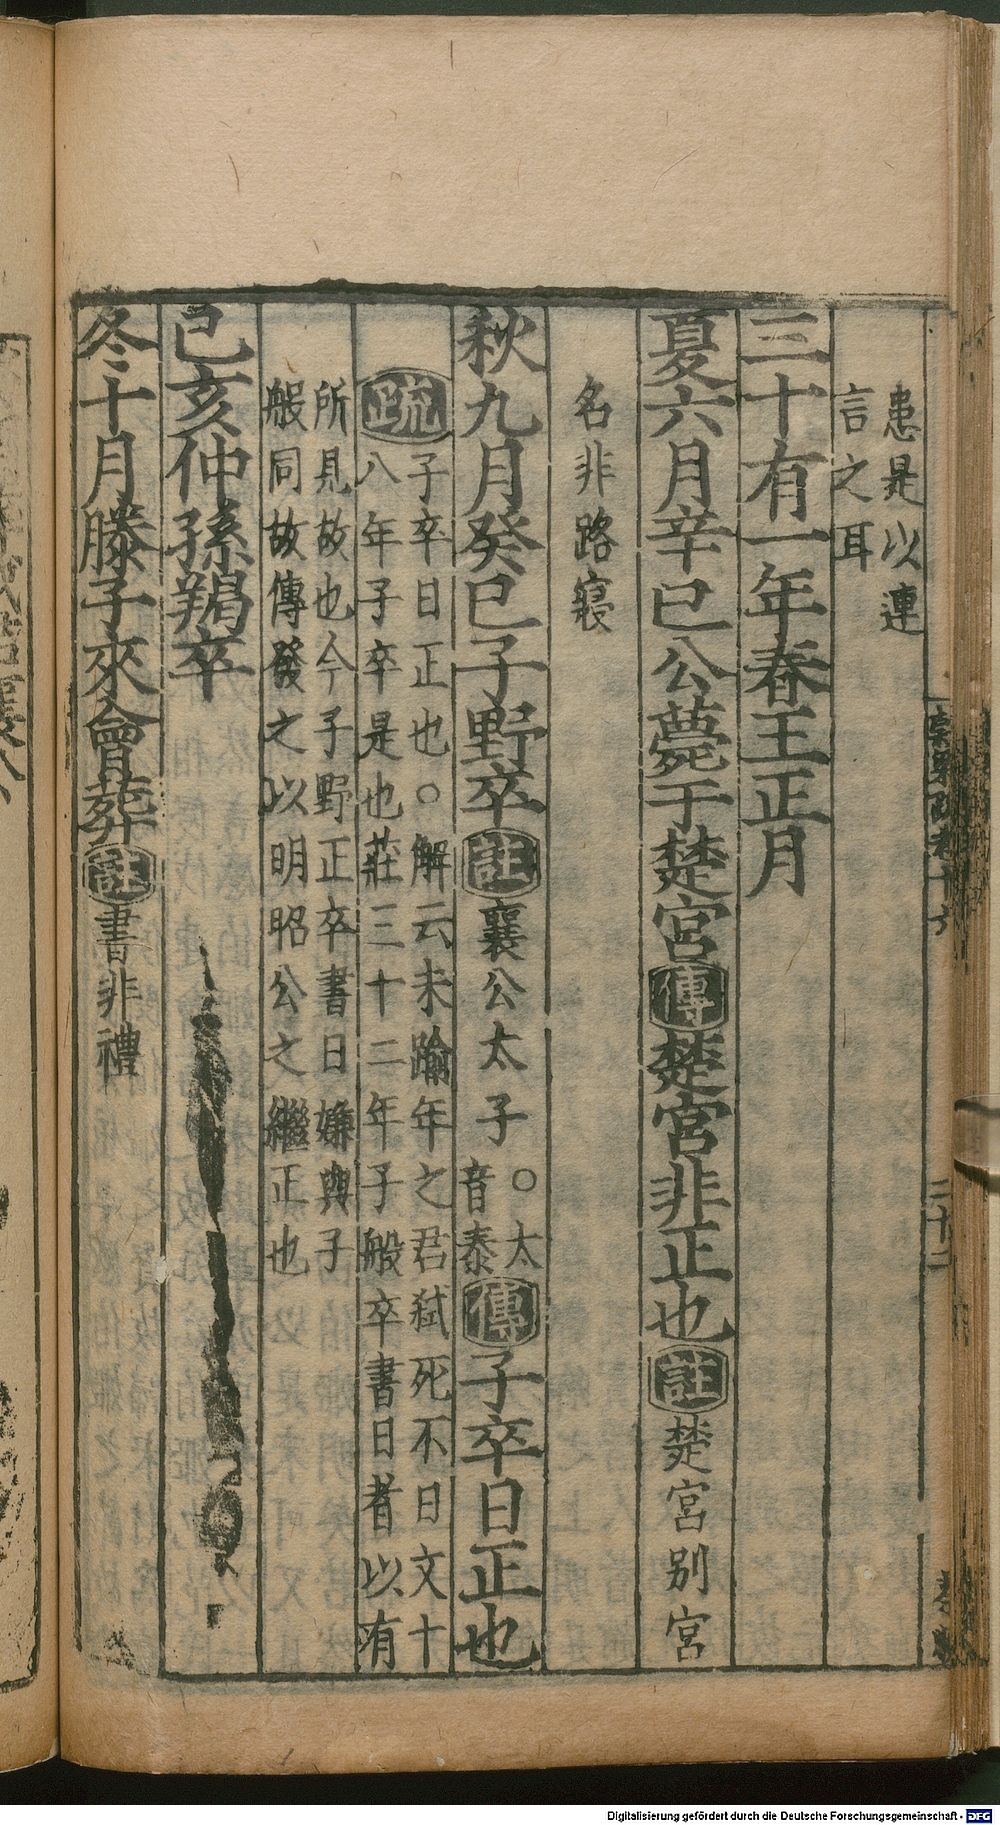 患是以連
言之耳
三十有一年春王正月
夏六月辛巳公薨于楚宮傳楚宮非正也註楚宮別宮
名非路寢
秋九月癸巳子野卒註襄公太子○太音泰傳子卒日正也
疏子卒日正也○解云未踰年之君弑死不日文十
八年子卒是也莊三十二年子般卒書日者以有
所見故也今子野正卒書日嫌與子
般同故傳發之以明昭公之繼正也
己亥仲孫羯卒
冬十月滕子來會葬註書非禮
Digitalisierung gefördert durch die Deutsche Forschungsgemeinschaft - DFG